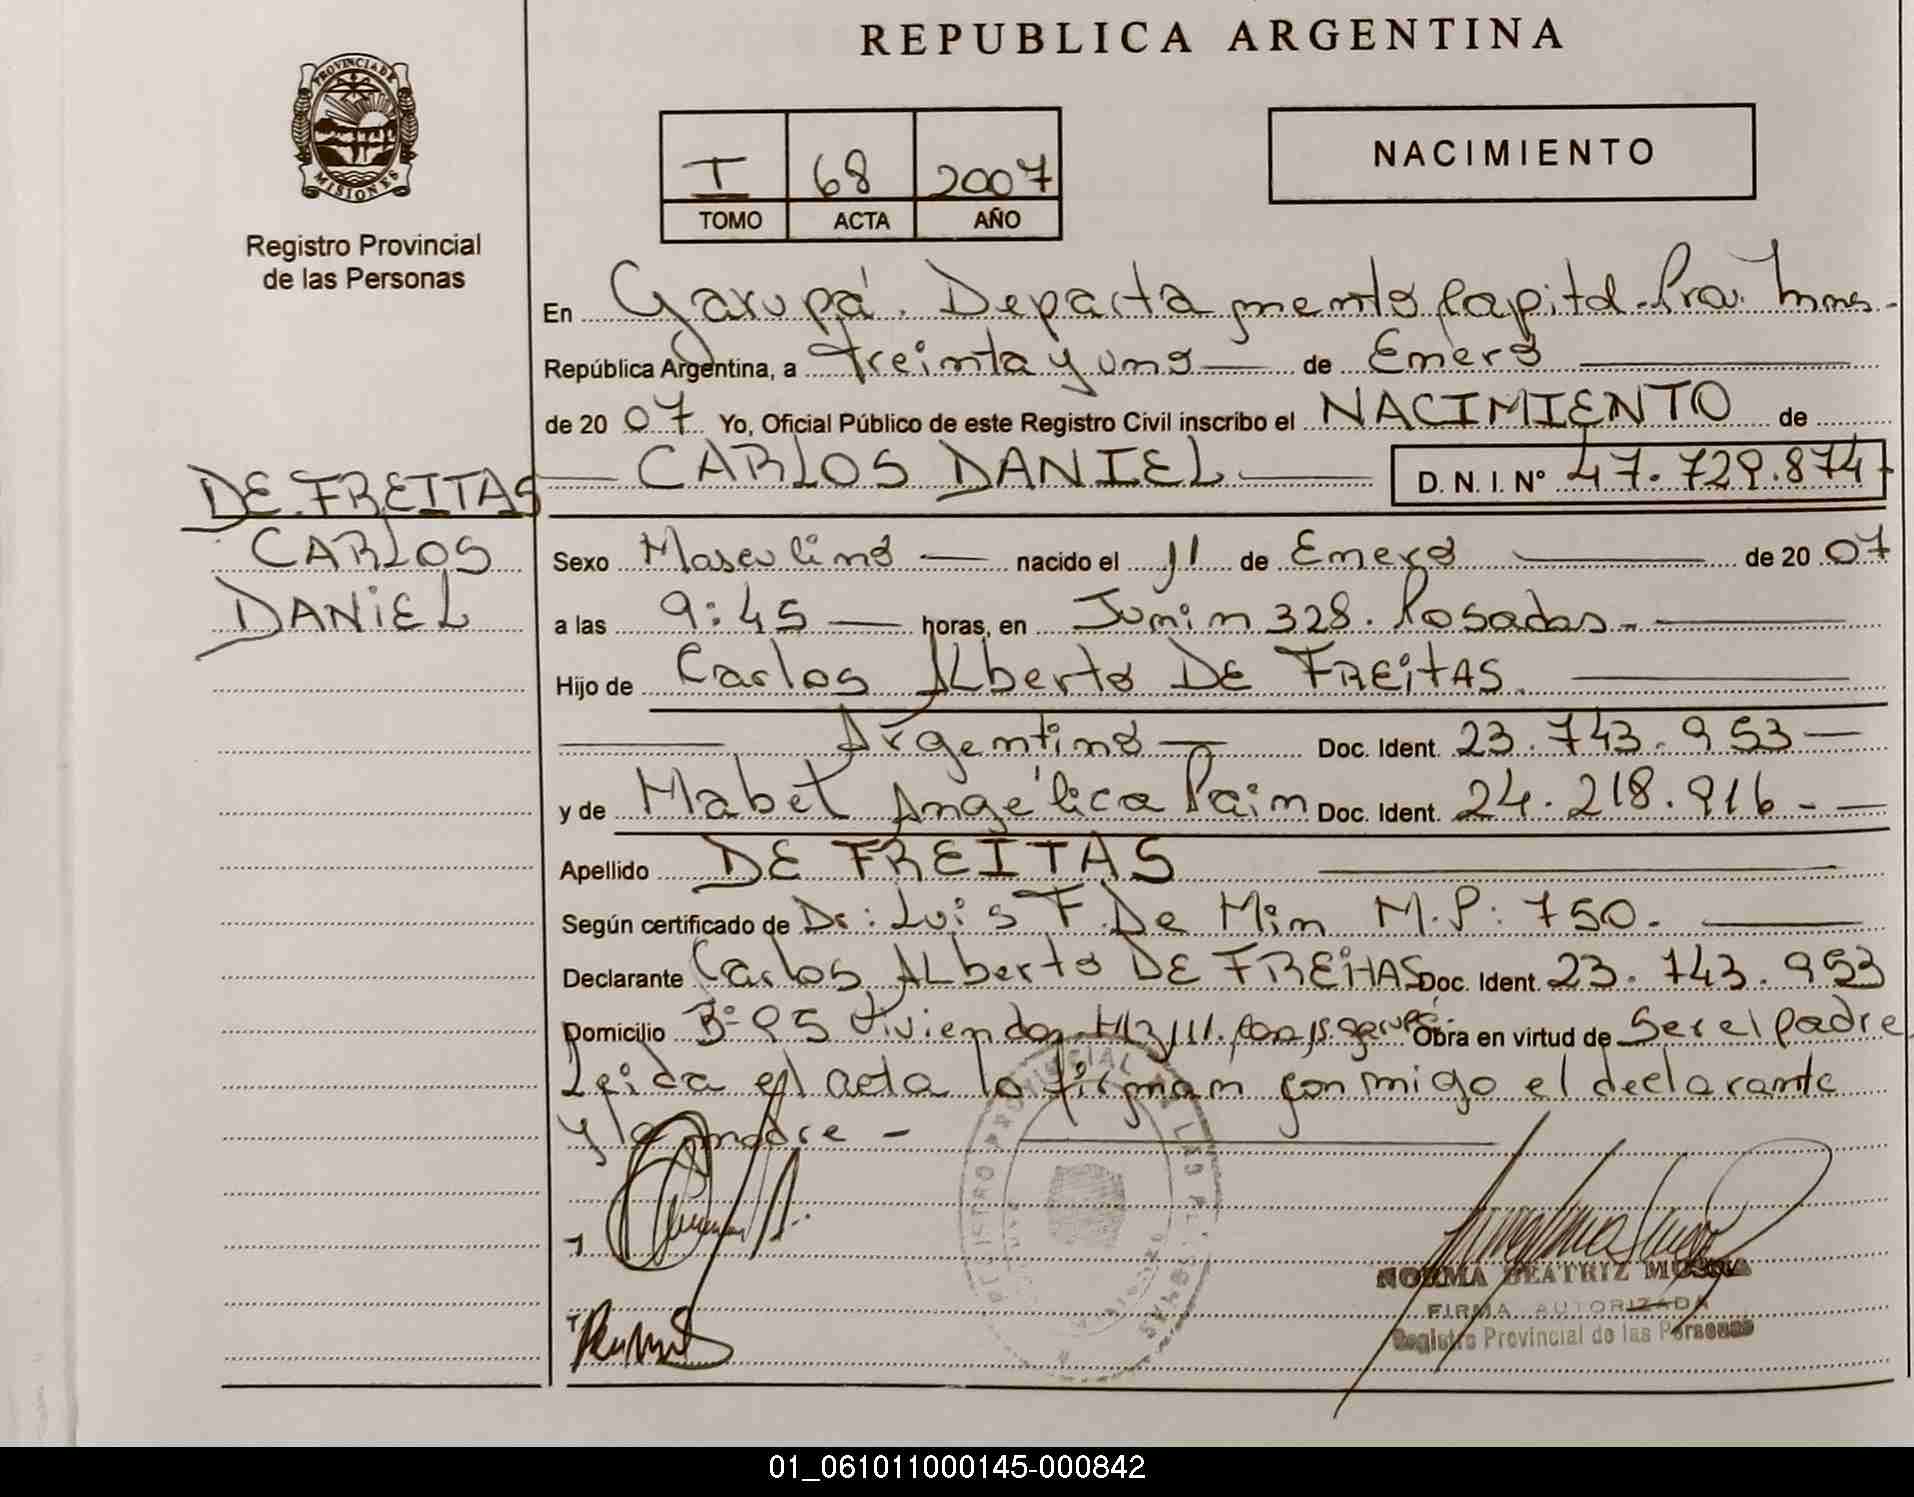 REPUBLICA ARGENTINA
PROVINCIA DE
MISIONES
Registro Provincial
de las Personas
I 68 2007
TOMO ACTA AÑO
NACIMIENTO
En Garupá. Departamento Capital. Pcia. Mnes.-
República Argentina, a treinta y uno de Enero
de 2007 Yo, Oficial Público de este Registro Civil inscribo el NACIMIENTO de
CARLOS DANIEL D. N. I. Nº 47.729.874
DE FREITAS
CARLOS
DANIEL
Sexo Masculino nacido el 11 de Enero de 2007
a las 9:45 horas, en Junin 328. Posadas.
Hijo de Carlos Alberto DE FREITAS.
Argentino Doc. Ident. 23.743.953
y de Mabel Angélica Paim Doc. Ident. 24.218.916.-
Apellido DE FREITAS
Según certificado de Dr: Luis F. De Min M.P: 750.
Declarante Carlos Alberto DE FREITAS Doc. Ident. 23.743.953
Domicilio Bº 95 Viviendas Garupá. Obra en virtud de Ser el padre
Leida el acta la firman conmigo el declarante
y la madre -
NORMA BEATRIZ
FIRMA AUTORIZADA
Registro Provincial de las Personas
01_061011000145-000842